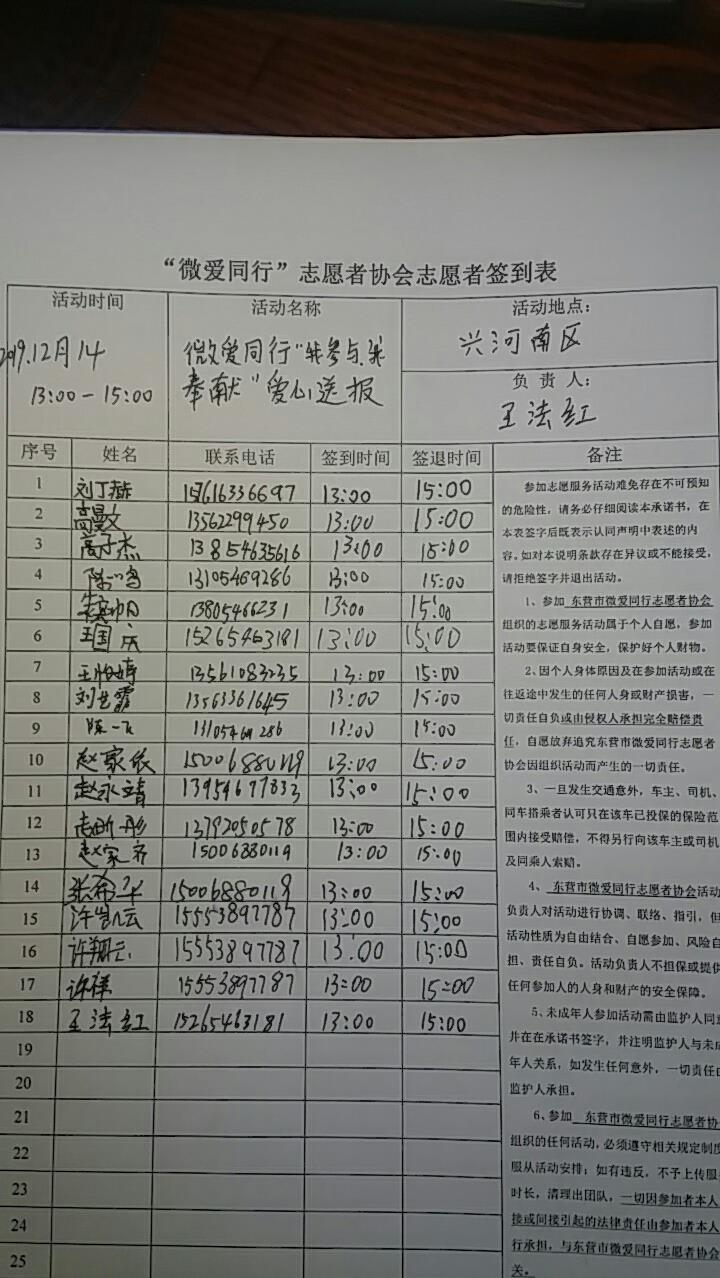 “微爱同行”志愿者协会志愿者签到表
活动时间 活动名称 活动地点：
2019.12月14 微爱同行“我参与.我 兴河南区
13:00－15:00 奉献”爱心送报 负责人：
王法红
序号 姓名 联系电话 签到时间 签退时间 备注
1 13:00 15:00
2 13562299450 13:00 15:00
3 高子杰 13854635616 13:00 15:00
4 陈一鸣 13105469286 13:00 15:00
5 13805466231 13:00 15:00
6 王国庆 15265463181 13:00 15:00
7 王怡婷 13561083235 13:00 15:00
8 刘芸霏 13563361645 13:00 15:00
9 陈一飞 13105469286 13:00 15:00
10 赵家依 15006880119 13:00 15:00
11 赵永靖 13954677333 13:00 15:00
12 13792050578 13:00 15:00
13 赵家齐 15006880119 13:00 15:00
14 张希华 15006880119 13:00 15:00
15 许凯云 15553897787 13:00 15:00
16 许翔云 15553897787 13:00 15:00
17 许祥 15553897787 13:00 15:00
18 王法红 15265463181 13:00 15:00
19
20
21
22
23
24
25
参加志愿服务活动难免存在不可预知
的危险性，请务必仔细阅读本承诺书，在
本表签字后既表示认同声明中表述的内
容。如对本说明条款存在异议或不能接受，
请拒绝签字并退出活动。
1、参加 东营市微爱同行志愿者协会
组织的志愿服务活动属于个人自愿，参加
活动要保证自身安全，保护好个人财物。
2、因个人身体原因及在参加活动或在
往返途中发生的任何人身或财产损害，一
切责任自负或由侵权人承担完全赔偿责
任，自愿放弃追究东营市微爱同行志愿者
协会因组织活动而产生的一切责任。
3、一旦发生交通意外，车主、司机、
同车搭乘者认可只在该车已投保的保险范
围内接受赔偿，不得另行向该车主或司机
及同乘人索赔。
4、 东营市微爱同行志愿者协会活动
负责人对活动进行协调、联络、指引，但
活动性质为自由结合、自愿参加、风险自
担、责任自负。活动负责人不担保或提供
任何参加人的人身和财产的安全保障。
5、未成年人参加活动需由监护人同意
并在在承诺书签字，并注明监护人与未成
年人关系，如发生任何意外，一切责任由
监护人承担。
6、参加 东营市微爱同行志愿者协
组织的任何活动，必须遵守相关规定制度
服从活动安排；如有违反，不予上传服
时长，清理出团队，一切因参加者本人
接或间接引起的法律责任由参加者本人
行承担，与东营市微爱同行志愿者协会
关。